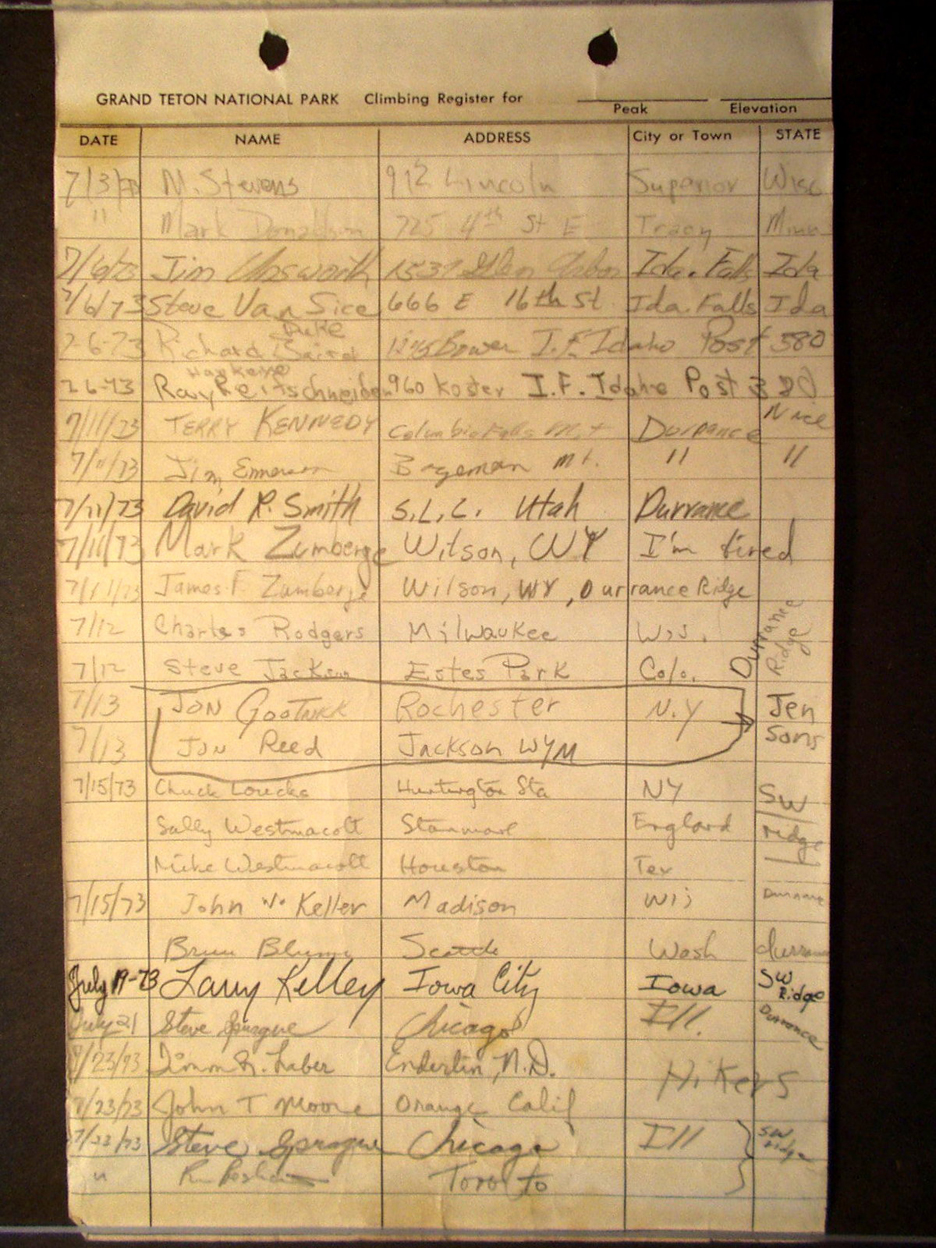 GRAND TETON NATIONAL PARK Climbing Register for
Peak Elevation
DATE NAME ADDRESS City or Town STATE
7/3/73 M. Stevens 912 Lincoln Superior Wisc
" Mark 725 4th St E Tracy Minn
7/6/73 Jim Unsworth Ida. Falls Ida
7/6/73 Steve Van Sice 666 E 16th St Ida. Falls Ida
Duke
2-6-73 Richard Bower I.F. Idaho Post 580
Hawkeye
2-6-73 Ray 960 Koster I.F. Idaho Post 380
7/11/73 TERRY KENNEDY Columbia Falls Mt Durrance Nice
7/11/73 Jim Emerson Bozeman Mt. " "
7/11/73 David R. Smith S.L.C. Utah Durrance
7/11/73 Mark Zumberge Wilson, WY I'm tired
7/11/73 James F Zumberge Wilson, WY, Durrance Ridge
7/12 Charles Rodgers Milwaukee Wis. Durrance Ridge
7/12 Steve Jackson Estes Park Colo.
7/13 JON Rochester N.Y Jen
7/13 JON Reed Jackson WYM Sons
7/15/73 Chuck Loucks Huntington Sta NY SW
Sally Westmacott Stanmore England ridge
Mike Westmacott Houston Tex
7/15/73 John W. Keller Madison Wis Durrance
Seattle Wash durrance
July 19-73 Larry Kelley Iowa City Iowa SW Ridge
July 21 Steve Sprague Chicago Ill. Durrance
7/23/73 Enderlin, N.D. Hikers
7/23/73 John T Moore Orange Calif
7/22/73 Steve Sprague Chicago Ill SW ridge
" Toronto